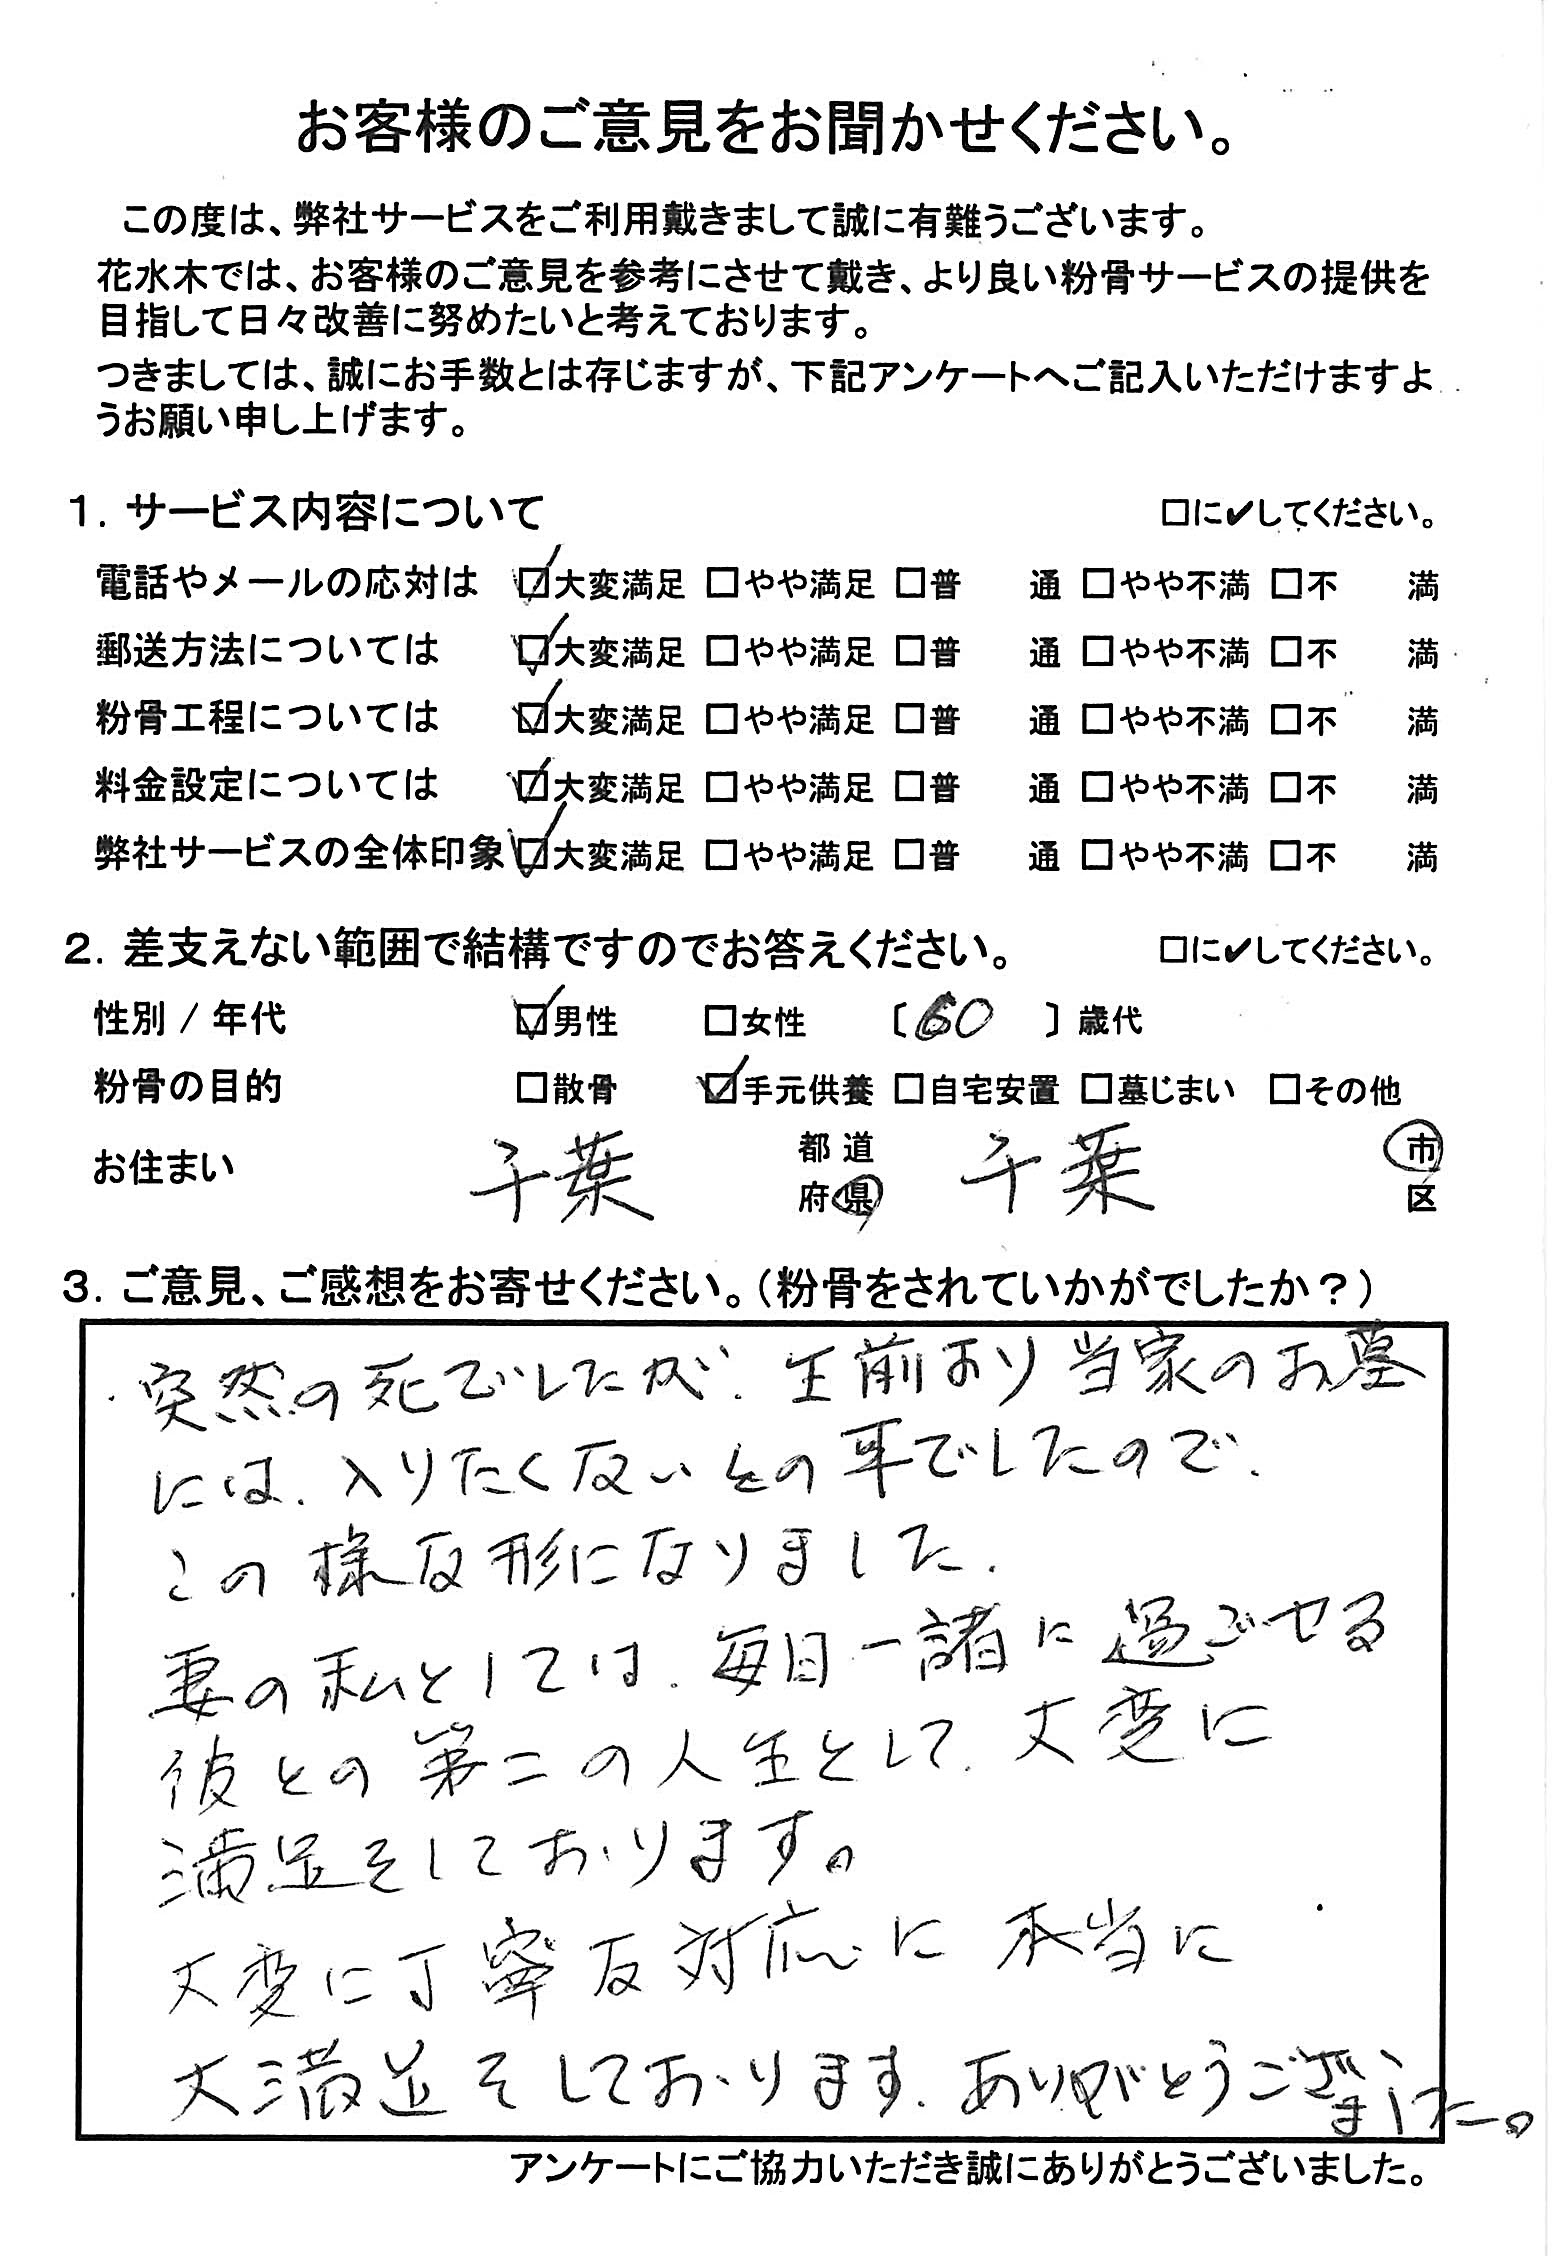 お客様のご意見をお聞かせください。
この度は、弊社サービスをご利用戴きまして誠に有難うございます。
花水木では、お客様のご意見を参考にさせて戴き、より良い粉骨サービスの提供を
目指して日々改善に努めたいと考えております。
つきましては、誠にお手数とは存じますが、下記アンケートへご記入いただけますよ
うお願い申し上げます。
1. サービス内容について □に✔してください。
電話やメールの応対は ☑大変満足 □やや満足 □普 通 □やや不満 □不 満
郵送方法については ☑大変満足 □やや満足 □普 通 □やや不満 □不 満
粉骨工程については ☑大変満足 □やや満足 □普 通 □やや不満 □不 満
料金設定については ☑大変満足 □やや満足 □普 通 □やや不満 □不 満
弊社サービスの全体印象 ☑大変満足 □やや満足 □普 通 □やや不満 □不 満
2. 差支えない範囲で結構ですのでお答えください。 □に✔してください。
性別 / 年代 ☑男性 □女性 〔60〕歳代
粉骨の目的 □散骨 ☑手元供養 □自宅安置 □墓じまい □その他
お住まい 千葉 都道府県 千葉 市区
3. ご意見、ご感想をお寄せください。(粉骨をされていかがでしたか?)
突然の死でしたが、生前より当家のお墓
には、入りたくないとの事でしたので、
この様な形になりました。
妻の私としては、毎日一諸に過ごせる
彼との第二の人生として、大変に
満足をしております。
大変に丁寧な対応に本当に
大満足をしております。ありがとうござい
ました。
アンケートにご協力いただき誠にありがとうございました。